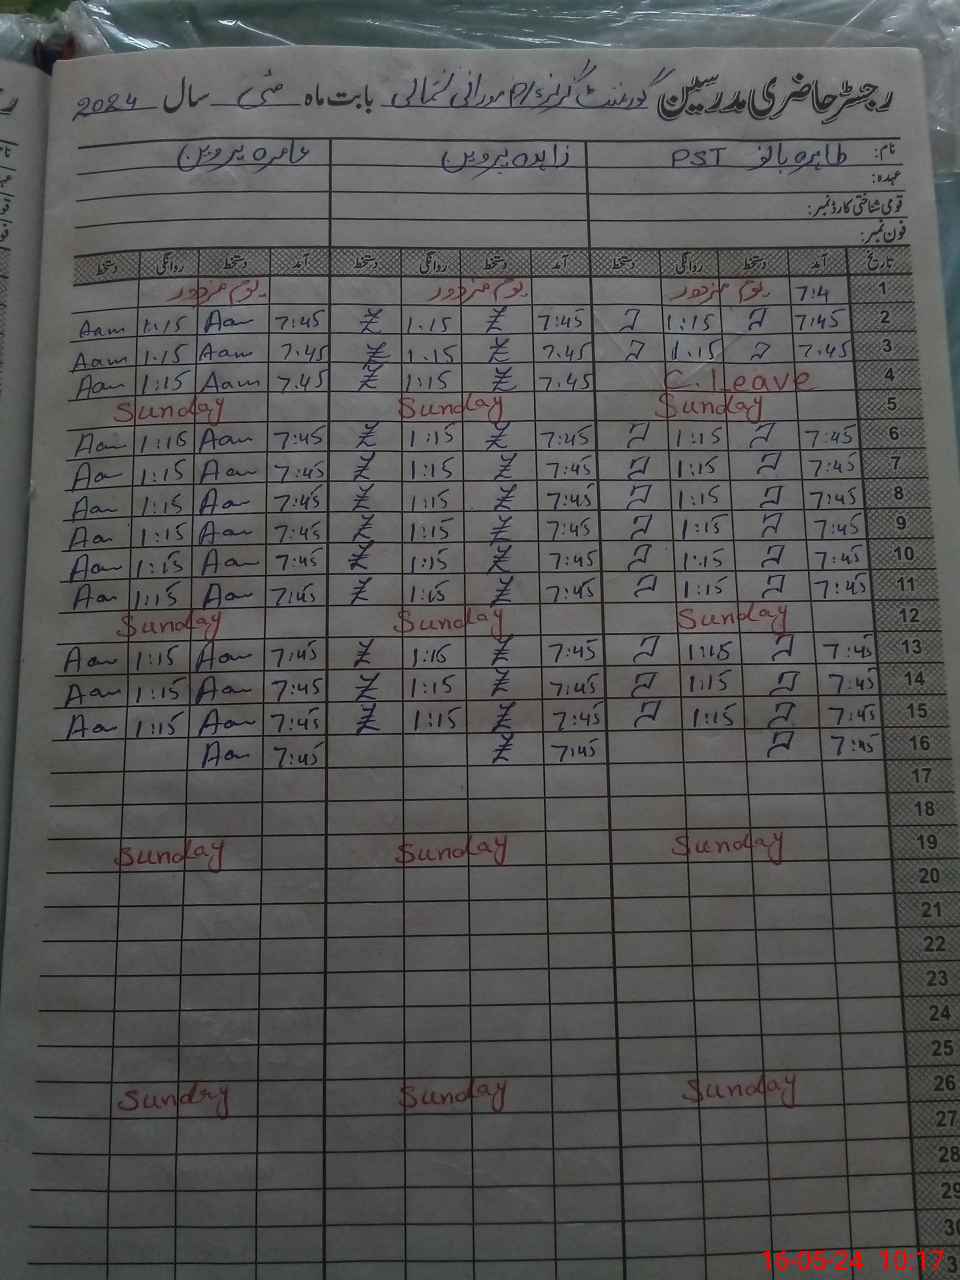 رجسٹر حاضری مدرسین گورنمنٹ گرلز P/S مورانی شمالی بابت ماہ مئی سال 2024
نام: طاہرہ بانو PST زاہدہ پروین عامرہ پروین
عہدہ:
قومی شناختی کارڈ نمبر:
فون نمبر:
تاریخ آمد دستخط روانگی دستخط آمد دستخط روانگی دستخط آمد دستخط روانگی دستخط
1 7:4 یوم مزدور یوم مزدور یوم مزدور
2 7:45 1:15 7:45 Z 1:15 Z 7:45 Aam 1:15 Aam
3 7:45 1:15 7:45 Z 1:15 Z 7:45 Aam 1:15 Aam
4 C.Leave 7:45 Z 1:15 Z 7:45 Aam 1:15 Aam
5 Sunday Sunday Sunday
6 7:45 1:15 7:45 Z 1:15 Z 7:45 Aam 1:15 Aam
7 7:45 1:15 7:45 Z 1:15 Z 7:45 Aam 1:15 Aam
8 7:45 1:15 7:45 Z 1:15 Z 7:45 Aam 1:15 Aam
9 7:45 1:15 7:45 Z 1:15 Z 7:45 Aam 1:15 Aam
10 7:45 1:15 7:45 Z 1:15 Z 7:45 Aam 1:15 Aam
11 7:45 1:15 7:45 Z 1:15 Z 7:45 Aam 1:15 Aam
12 Sunday Sunday Sunday
13 7:45 1:15 7:45 Z 1:15 Z 7:45 Aam 1:15 Aam
14 7:45 1:15 7:45 Z 1:15 Z 7:45 Aam 1:15 Aam
15 7:45 1:15 7:45 Z 1:15 Z 7:45 Aam 1:15 Aam
16 7:45 7:45 Z 7:45 Aam
17
18
19 Sunday Sunday Sunday
20
21
22
23
24
25
26 Sunday Sunday Sunday
27
28
29
30
16-05-24 10:17